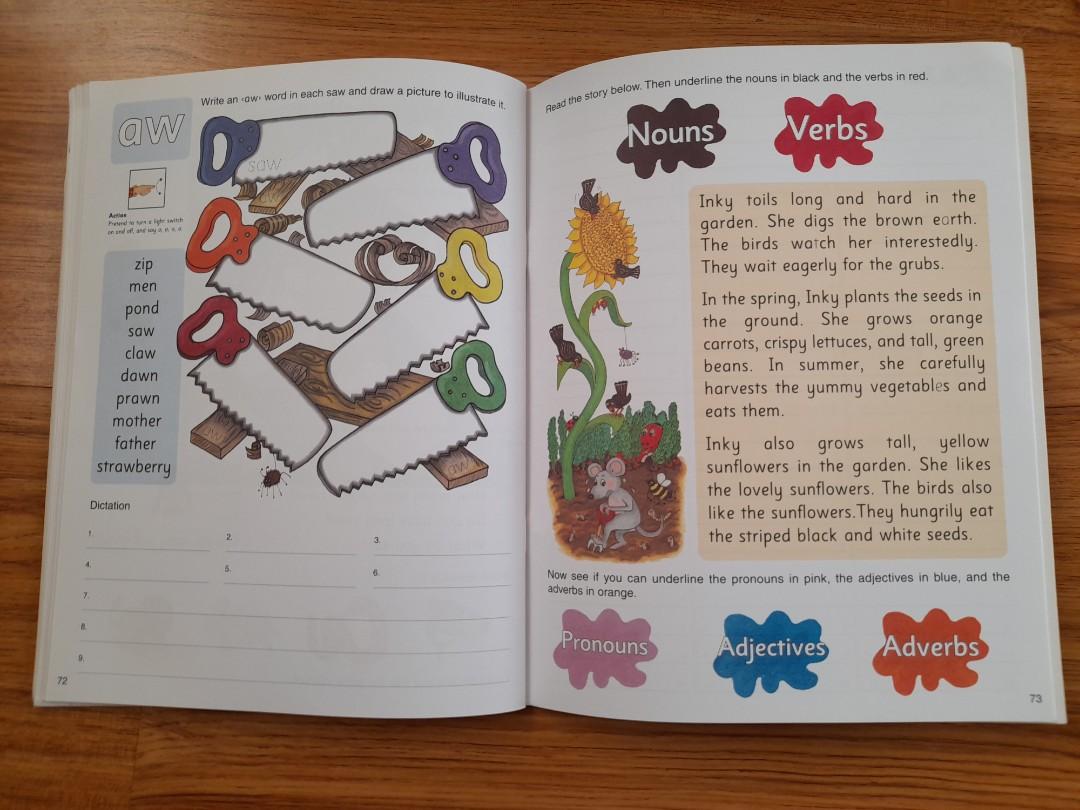 Write an ‹aw› word in each saw and draw a picture to illustrate it.
aw
saw
Action
Pretend to turn a light switch
on and off, and say o, o, o, o.
zip
men
pond
saw
claw
dawn
prawn
mother
father
strawberry
aw
aw
Dictation
1.
2.
3.
4.
5.
6.
7.
8.
9.
72
Read the story below. Then underline the nouns in black and the verbs in red.
Nouns
Verbs
Inky toils long and hard in the
garden. She digs the brown earth.
The birds watch her interestedly.
They wait eagerly for the grubs.
In the spring, Inky plants the seeds in
the ground. She grows orange
carrots, crispy lettuces, and tall, green
beans. In summer, she carefully
harvests the yummy vegetables and
eats them.
Inky also grows tall, yellow
sunflowers in the garden. She likes
the lovely sunflowers. The birds also
like the sunflowers.They hungrily eat
the striped black and white seeds.
Now see if you can underline the pronouns in pink, the adjectives in blue, and the
adverbs in orange.
Pronouns
Adjectives
Adverbs
73